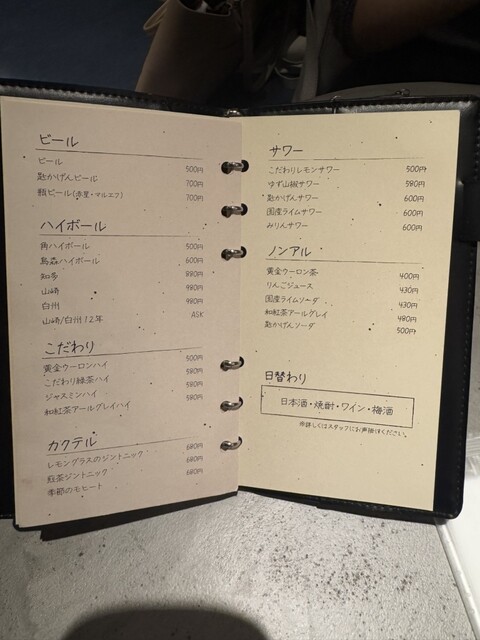 ビール
ビール 500円
匙かげんビール 700円
瓶ビール(赤星・マルエフ) 700円
ハイボール
角ハイボール 500円
島森ハイボール 600円
知多 880円
山崎 980円
白州 980円
山崎/白州 12年 ASK
こだわり
黄金ウーロンハイ 500円
こだわり緑茶ハイ 580円
ジャスミンハイ 580円
和紅茶アールグレイハイ 580円
カクテル
レモングラスのジントニック 680円
紅茶ジントニック 680円
季節のモヒート 680円
サワー
こだわりレモンサワー 500円
ゆず山椒サワー 580円
匙かげんサワー 600円
国産ライムサワー 600円
みりんサワー 600円
ノンアル
黄金ウーロン茶 400円
りんごジュース 430円
国産ライムソーダ 430円
和紅茶アールグレイ 480円
匙かげんソーダ 500円
日替わり
日本酒・焼酎・ワイン・梅酒
※詳しくはスタッフにお声掛けください。